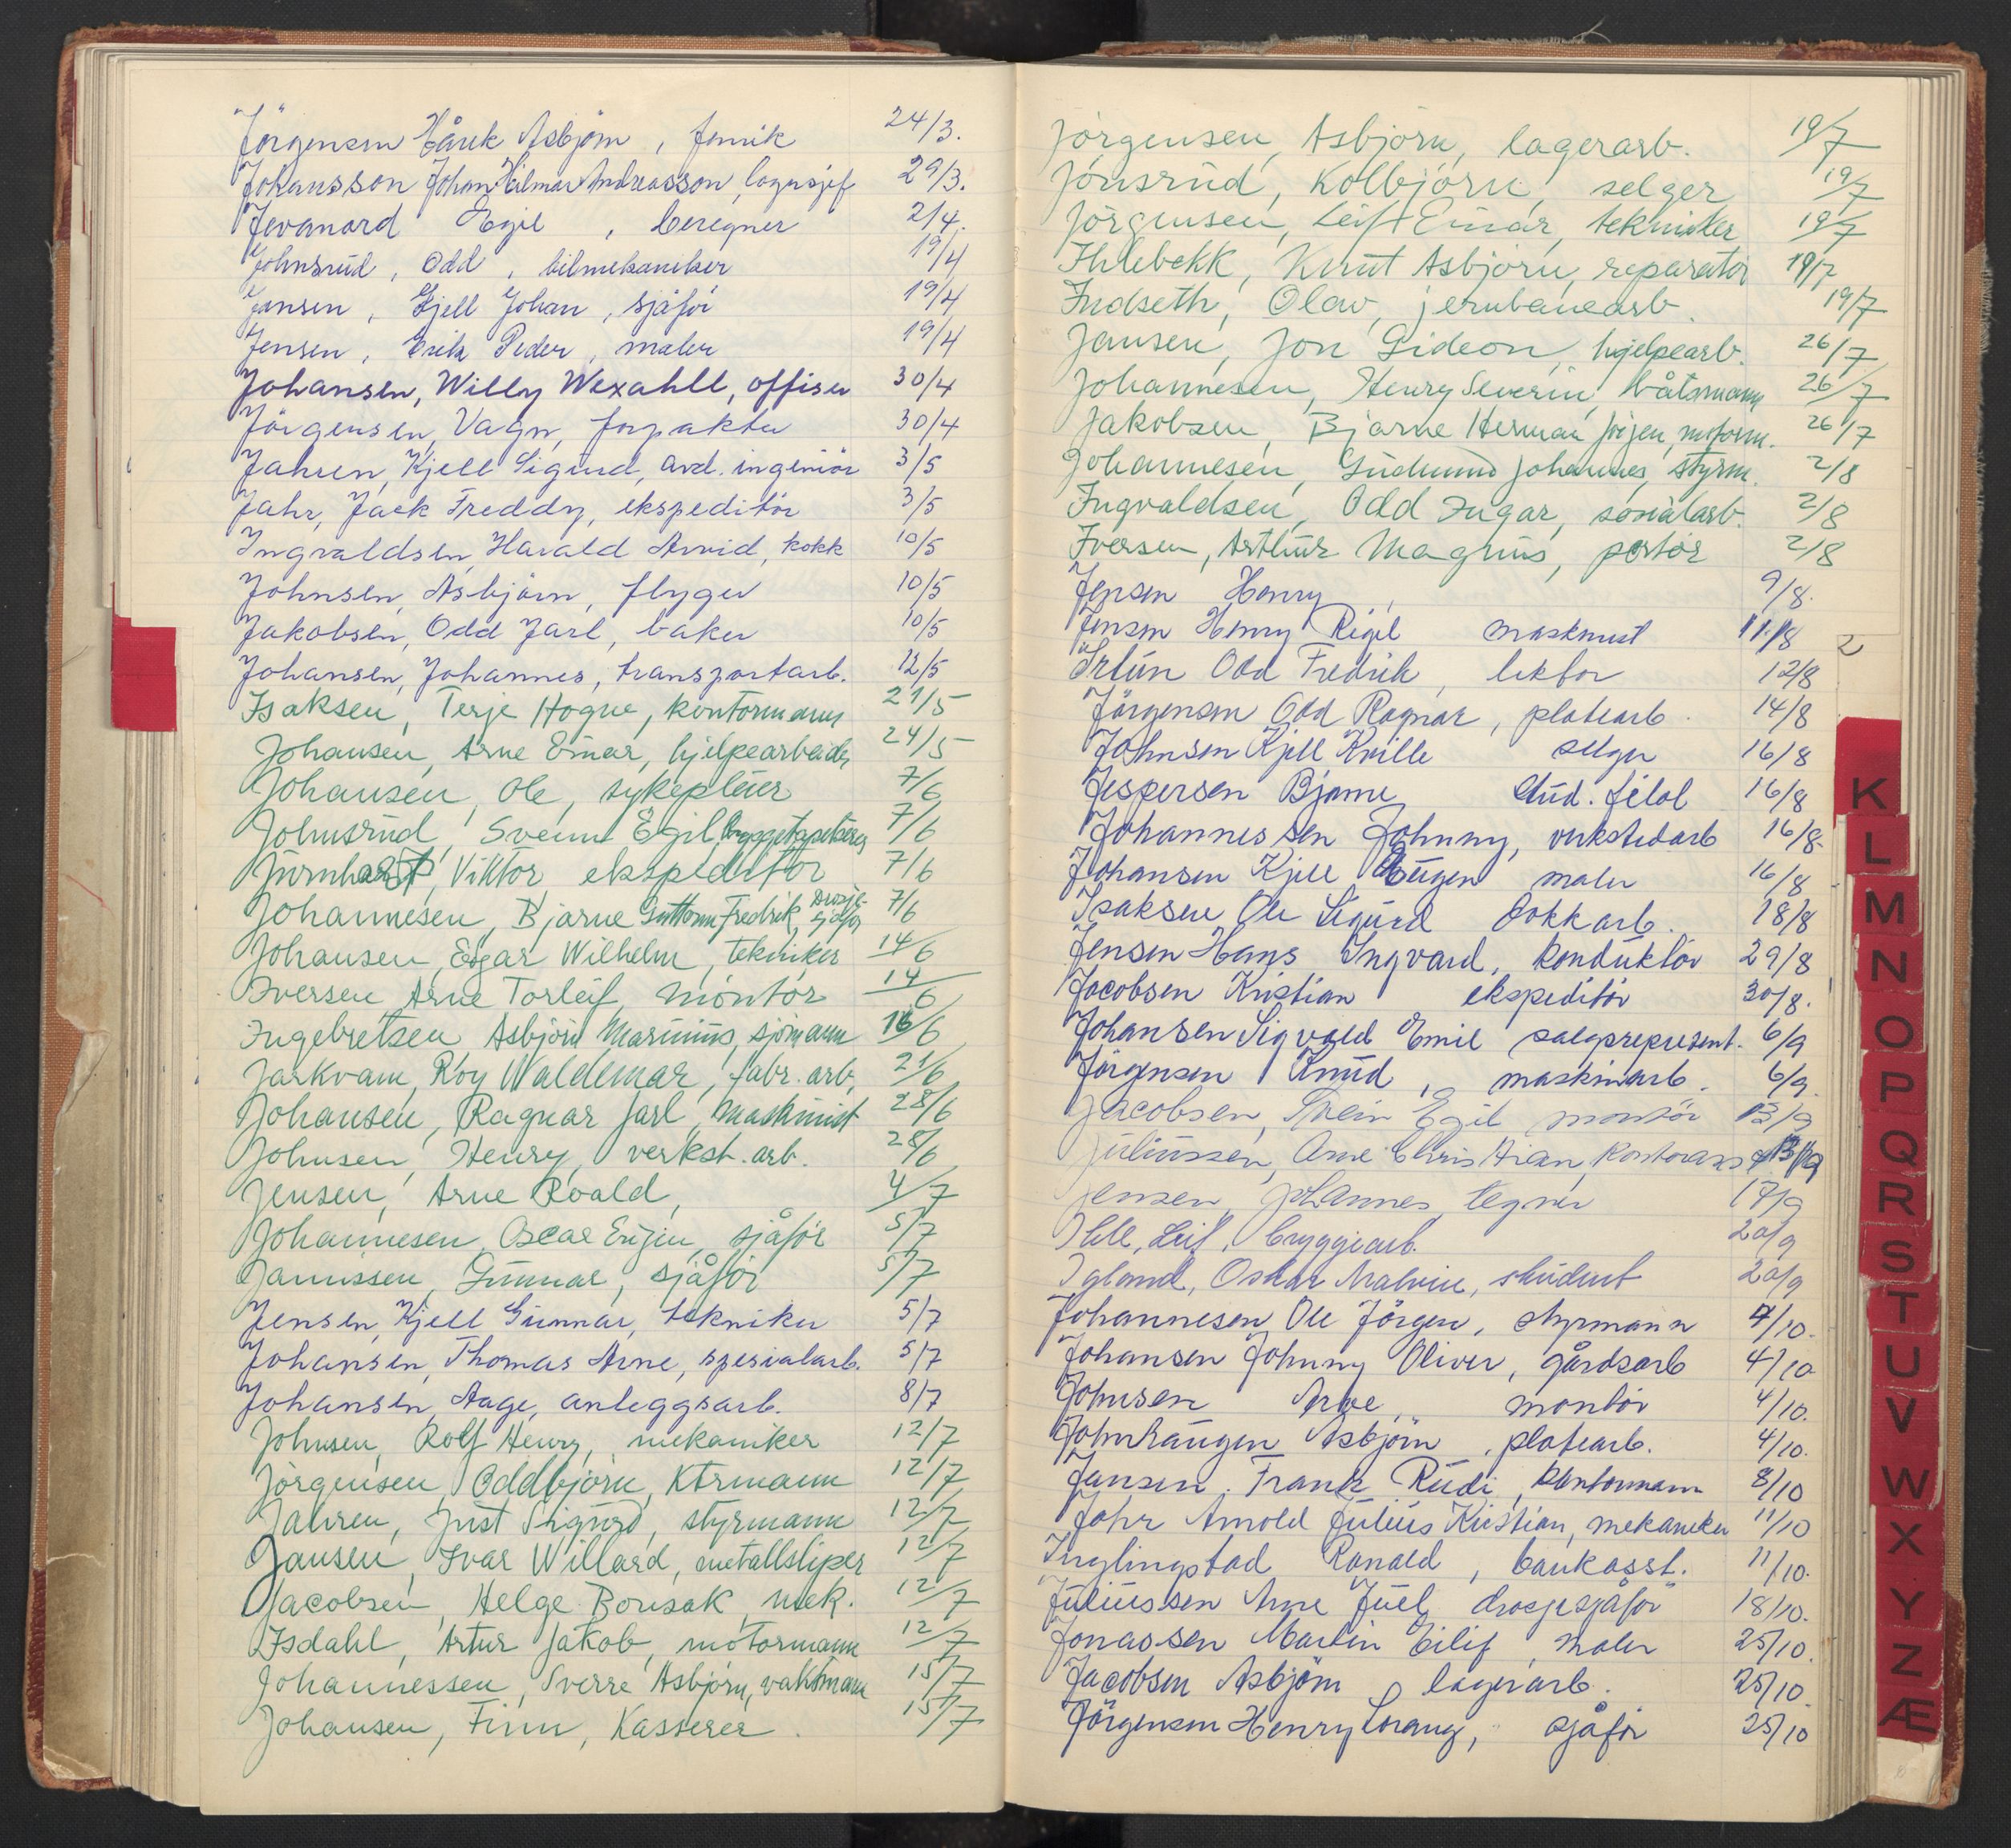 Jörgensen Hårek Asbjörn, fenrik 24/3.
Johansson Johan Hilmar Andreasson, lagersjef 29/3.
Jevanord Egil, beregner 2/4.
Johnsrud, Odd, bilmekaniker 19/4
Jensen, Kjell Johan, sjåför 19/4
Jensen, Erik Peder, maler 19/4
Johansen, Willy Wexahll, offiser 30/4
Jörgensen, Vagn, forpakter 30/4
Jahren, Kjell Sigurd, avd. ingeniör 3/5
Jahr, Jack Freddy, ekspeditör 3/5
Ingvaldsen, Harald Arvid, kokk 10/5
Johnsen, Asbjörn, flyger 10/5
Jakobsen, Odd Jarl, baker 10/5
Johansen, Johannes, transportarb. 12/5
Isaksen, Terje Hogne, kontormann 21/5
Johansen, Arne Einar, hjelpearbeider 24/5
Johansen, Ole, sykepleier 7/6
Johnsrud, Svenn Egil, 7/6
Viktor, ekspeditör 7/6
Johannesen, Bjarne Guttorm Fredrik, drosjesjåfør 7/6
Johansen, Edgar Wilhelm, tekniker 14/6
Iversen, Arne Torleif, montör 14/6
Ingebretsen Asbjörn Marinius, sjömann 16/6
Jarkvam, Roy Waldemar, fabr. arb, 21/6
Johansen, Ragnar Jarl, maskinist 28/6
Johnsen, Henry, verkst. arb. 28/6
Jensen, Arne Roald, 4/7
Johannesen, Oscar Eugen, sjåför 5/7
Janussen, Gunnar, sjåför 5/7
Jensen, Kjell Gunnar, tekniker 5/7
Johansen, Thomas Arne, spesialarb. 5/7
Johansen, Aage, anleggsarb. 8/7
Johnsen, Rolf Henry, mekaniker 12/7
Jörgensen, Oddbjörn, Ktrmann 12/7
Jahren, Just Sigurd, styrmann 12/7
Jansen, Ivar Willard, metallsliper 12/7
Jacobsen, Helge Bonsak, mek. 12/7
Isdahl, Artur Jakob, motormann 12/7
Johannessen, Sverre Asbjörn, vaktmann 15/7
Johansen, Finn, Kasserer. 15/7
Jörgensen, Asbjörn, lagerarb. 19/7
Jönsrud, Kolbjörn, selger 19/7
Jörgensen, Leif Einar, tekniker 19/7
Ihlebekk, Knut Asbjörn, reparatör 19/7
Indseth, Olav, jernbanearb. 19/7
Jansen, Jon Gideon, hjelpearb. 26/7
Johannesen, Henry Severin, båtsmann 26/7
Jakobsen, Bjarne Herman Jörgen, motorm. 26/7
Johannesen, Gudmund Johannes, styrm. 2/8
Ingvaldsen, Odd Ingar, sosialarb. 2/8
Iversen, Arthur Magnus, portör 2/8
Jensen Henry, 9/8.
Jensen Henry Rigel maskinist 11/8
2
Irtun Odd Fredrik, lektor 12/8
Jörgensen Odd Ragnar, platearb. 14/8
Johnsen Kjell Kville selger 16/8
Jespersen Bjarne, stud. filol 16/8
Johannessen Johnny, verkstedarb 16/8.
Johansen Kjell Eugen maler 16/8
Isaksen Ole Sigurd dokkarb. 18/8
Jensen Hans Ingvard, konduktör 29/8
Jacobsen Kristian ekspeditör 30/8.
Johansen Sigvald Emil salgsrepresent. 6/9
Jörgensen Knud, maskinarb. 6/9.
Jacobsen, Stein Egil montör 13/9
Juliussen, Arne Christian, kontorass 13/9
Jensen, Johannes, tegner 17/9
Ihle, Leif, bryggearb. 20/9
Igland, Oskar Malvin, student 20/9
Johannesen Ole Jörgen, styrmann 4/10.
Johansen Johnny Oliver, gårdsarb 4/10.
Johnsen Arve, montör 4/10.
Johnhaugen Asbjörn, platearb. 4/10.
Jansen, Frank Rudi, kontormann 8/10
Jahr Arnold Julius Kristian, mekaniker 11/10
Inglingstad Ronald, bankasst. 11/10.
Juliussen Arne Juel, drosjesjåför 18/10.
Jonassen Martin Eilif, maler 25/10.
Jacobsen Asbjörn, lagerarb. 25/10.
Jörgensen Henry Lorang, sjåför 25/10
K
L
M
N
O
P
Q
R
S
T
U
V
W
X
Y
Z
Æ